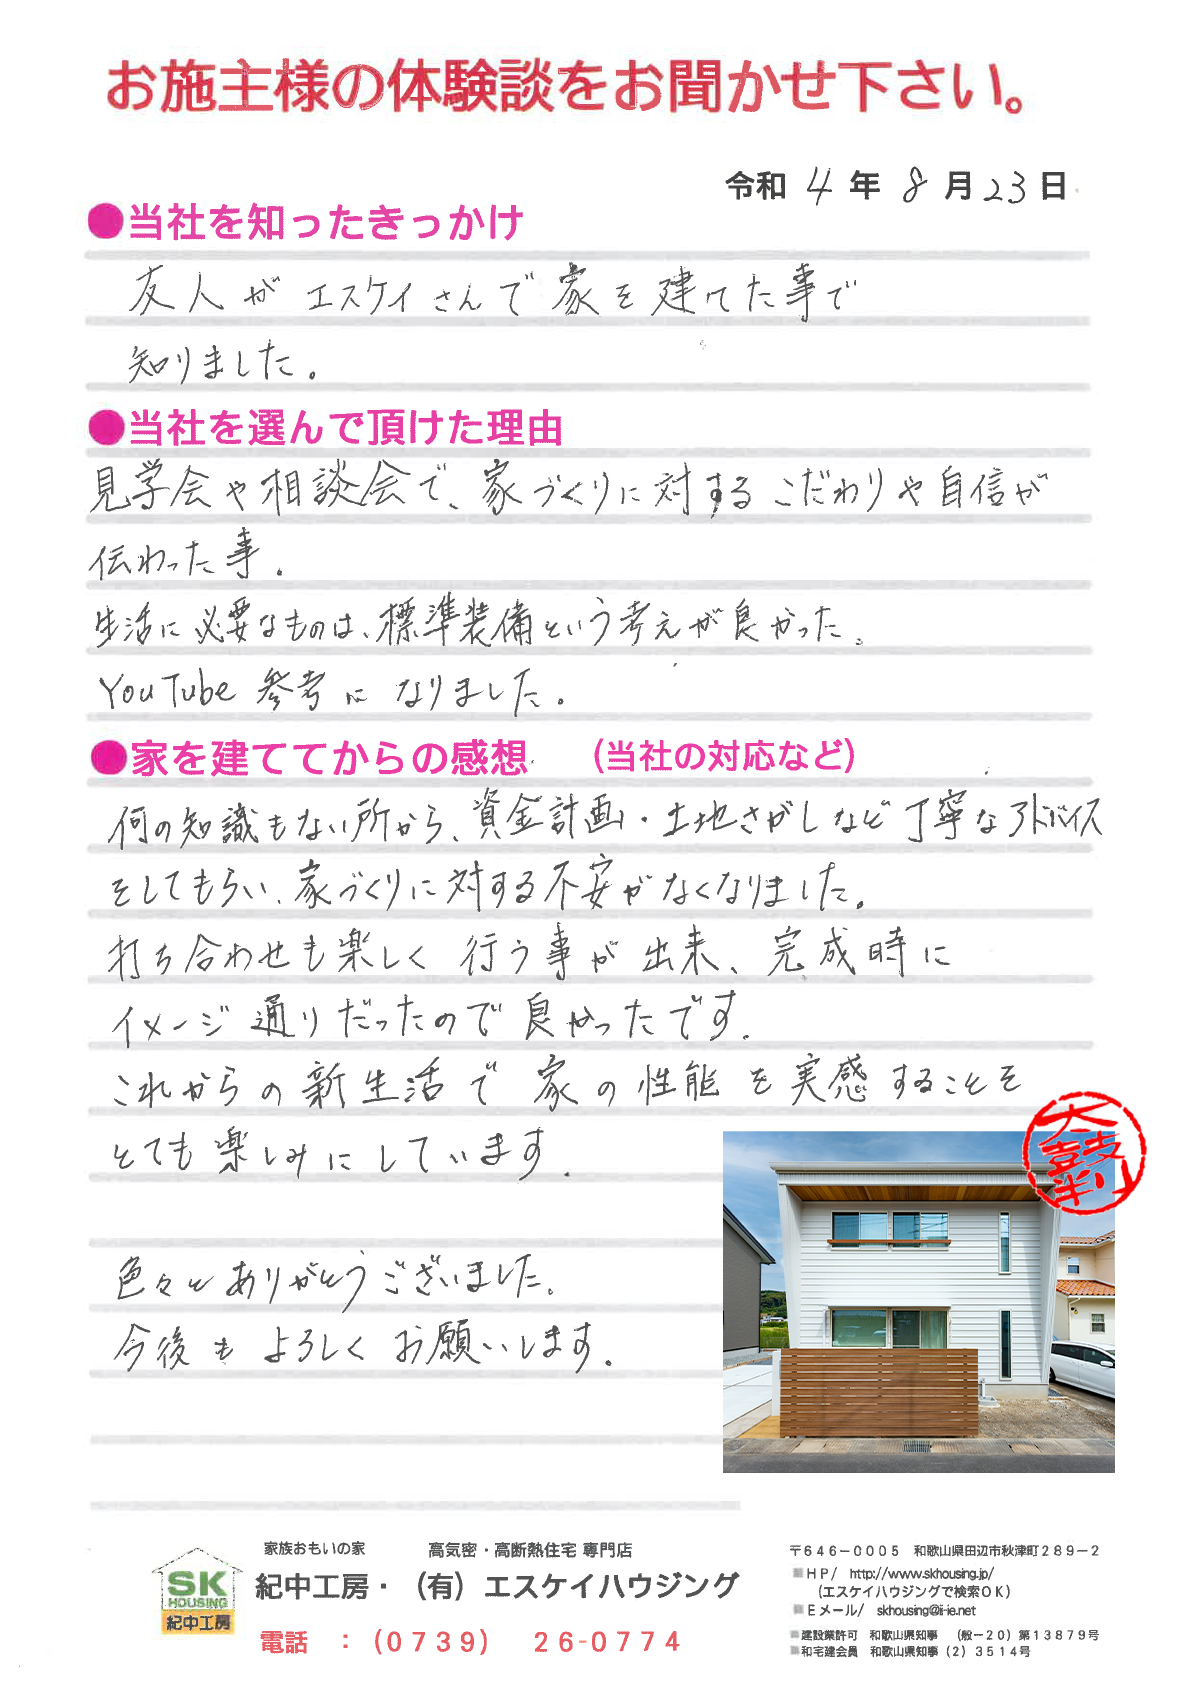 お施主様の体験談をお聞かせ下さい。
令和 4 年 8 月 23 日
●当社を知ったきっかけ
友人が エスケイさんで 家を 建てた事で
知りました。
●当社を選んで頂けた理由
見学会や相談会で、家づくりに対する こだわりや自信が
伝わった事.
生活に必要なものは、標準装備という考えが良かった。
YouTube 参考に なりました。
●家を建ててからの感想 (当社の対応など)
何の知識もない所から、資金計画・土地さがしなど丁寧なアドバイス
をしてもらい、家づくりに対する不安がなくなりました。
打ち合わせも楽しく 行う事が 出来、完成時に
イメージ通りだったので良かったです.
これからの新生活で 家の性能を実感することを
とても楽しみにしています.
色々とありがとうございました。
今後も よろしくお願いします.
大鼓判
SK
HOUSING
紀中工房
家族おもいの家 高気密・高断熱住宅 専門店
紀中工房・(有)エスケイハウジング
電話 :(0739) 26-0774
〒646−0005 和歌山県田辺市秋津町289−2
■HP/ http://www.skhousing.jp/
(エスケイハウジングで検索OK)
■Eメール/ skhousing@ii-ie.net
■建設業許可 和歌山県知事 (般−20)第13879号
■和宅建会員 和歌山県知事(2)3514号